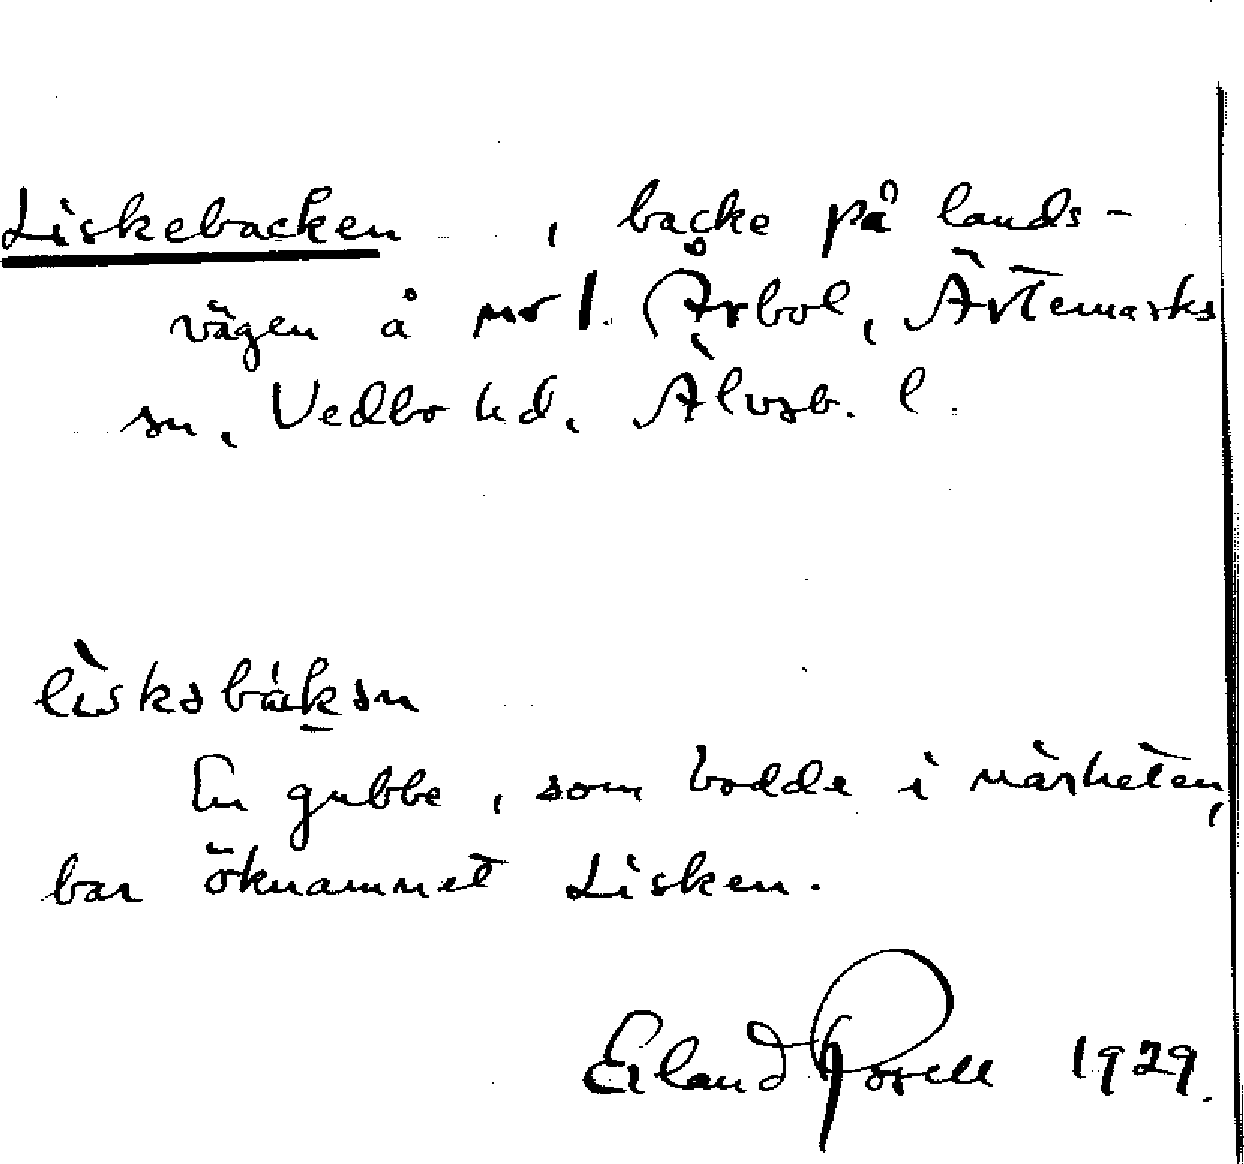 Liskebacken, backe på lands-
vägen å nr 1. Årbol, Ärtemarks
sn, Vedbo hd, Älvsb. l.
lìskəbàkən
En gubbe, som bodde i närheten,
bar öknamnet Lisken.
Erland Rosell 1929.